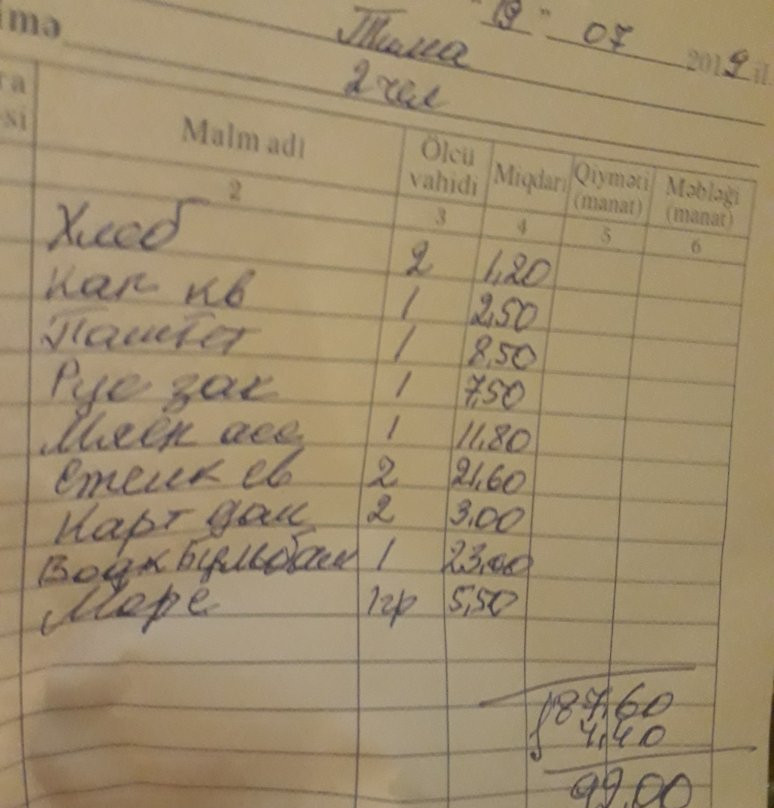 imə Тима "19" 07 2019 il
2 чел
ra
si Malın adı Ölçü vahidi Miqdarı Qiyməti (manat) Məbləği (manat)
2 3 4 5 6
Хлеб 2 1,20
Кап кв 1 2,50
Паштет 1 8,50
Рус зак 1 7,50
Мясн асс 1 11,80
Стейк св 2 21,60
Карт дол 2 3,00
Водк Бульбаш 1 23,00
Морс 1гр 5,50
84,60
4,40